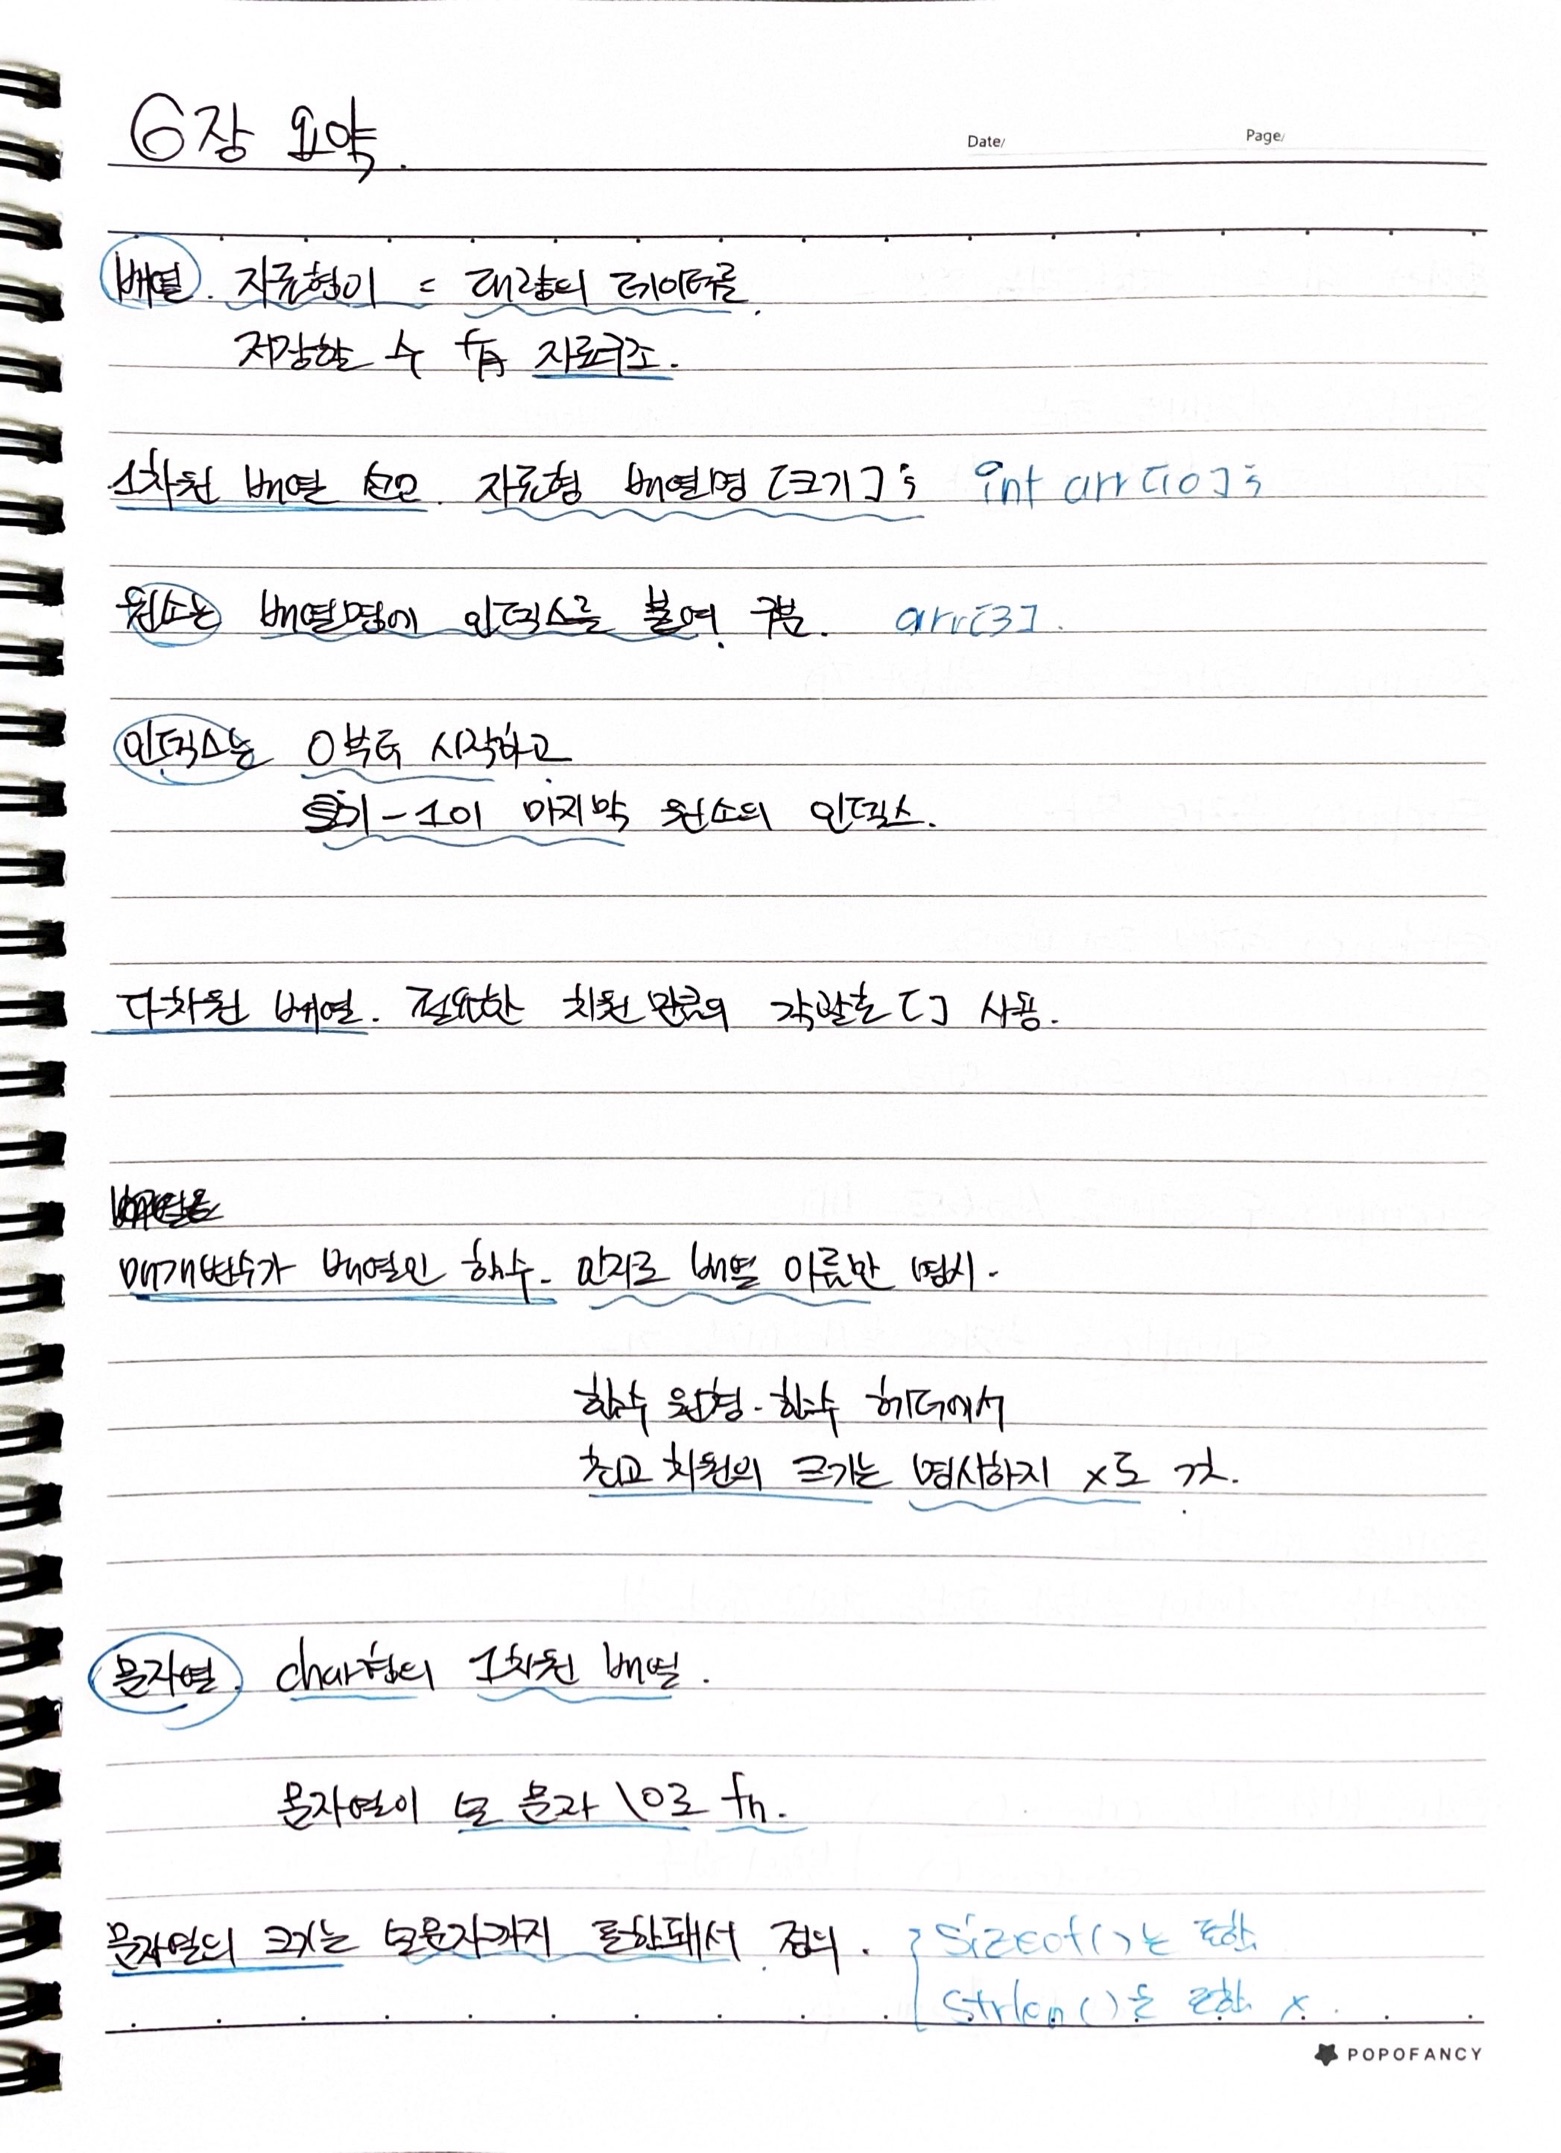 6장 요약.
Date/
Page/
배열. 자료형이 = 대량의 데이터를
저장할 수 有 자료구조.
1차원 배열 선언. 자료형 배열명 [크기]; int arr[10];
원소는 배열명에 인덱스를 붙여 구분. arr[3].
인덱스는 0부터 시작하고
크기-1이 마지막 원소의 인덱스.
다차원 배열. 필요한 차원 만큼의 각괄호 [] 사용.
매개변수가 배열인 함수. 인자로 배열 이름만 명시.
함수 원형. 함수 헤더에서
최고 차원의 크기는 명시하지 x도 것.
문자열. char형의 1차원 배열.
문자열이 널 문자 \0로 fn.
문자열의 크기는 널문자까지 포함돼서 정의. sizeof()는 포함
strlen()은 포함 x.
POPOFANCY